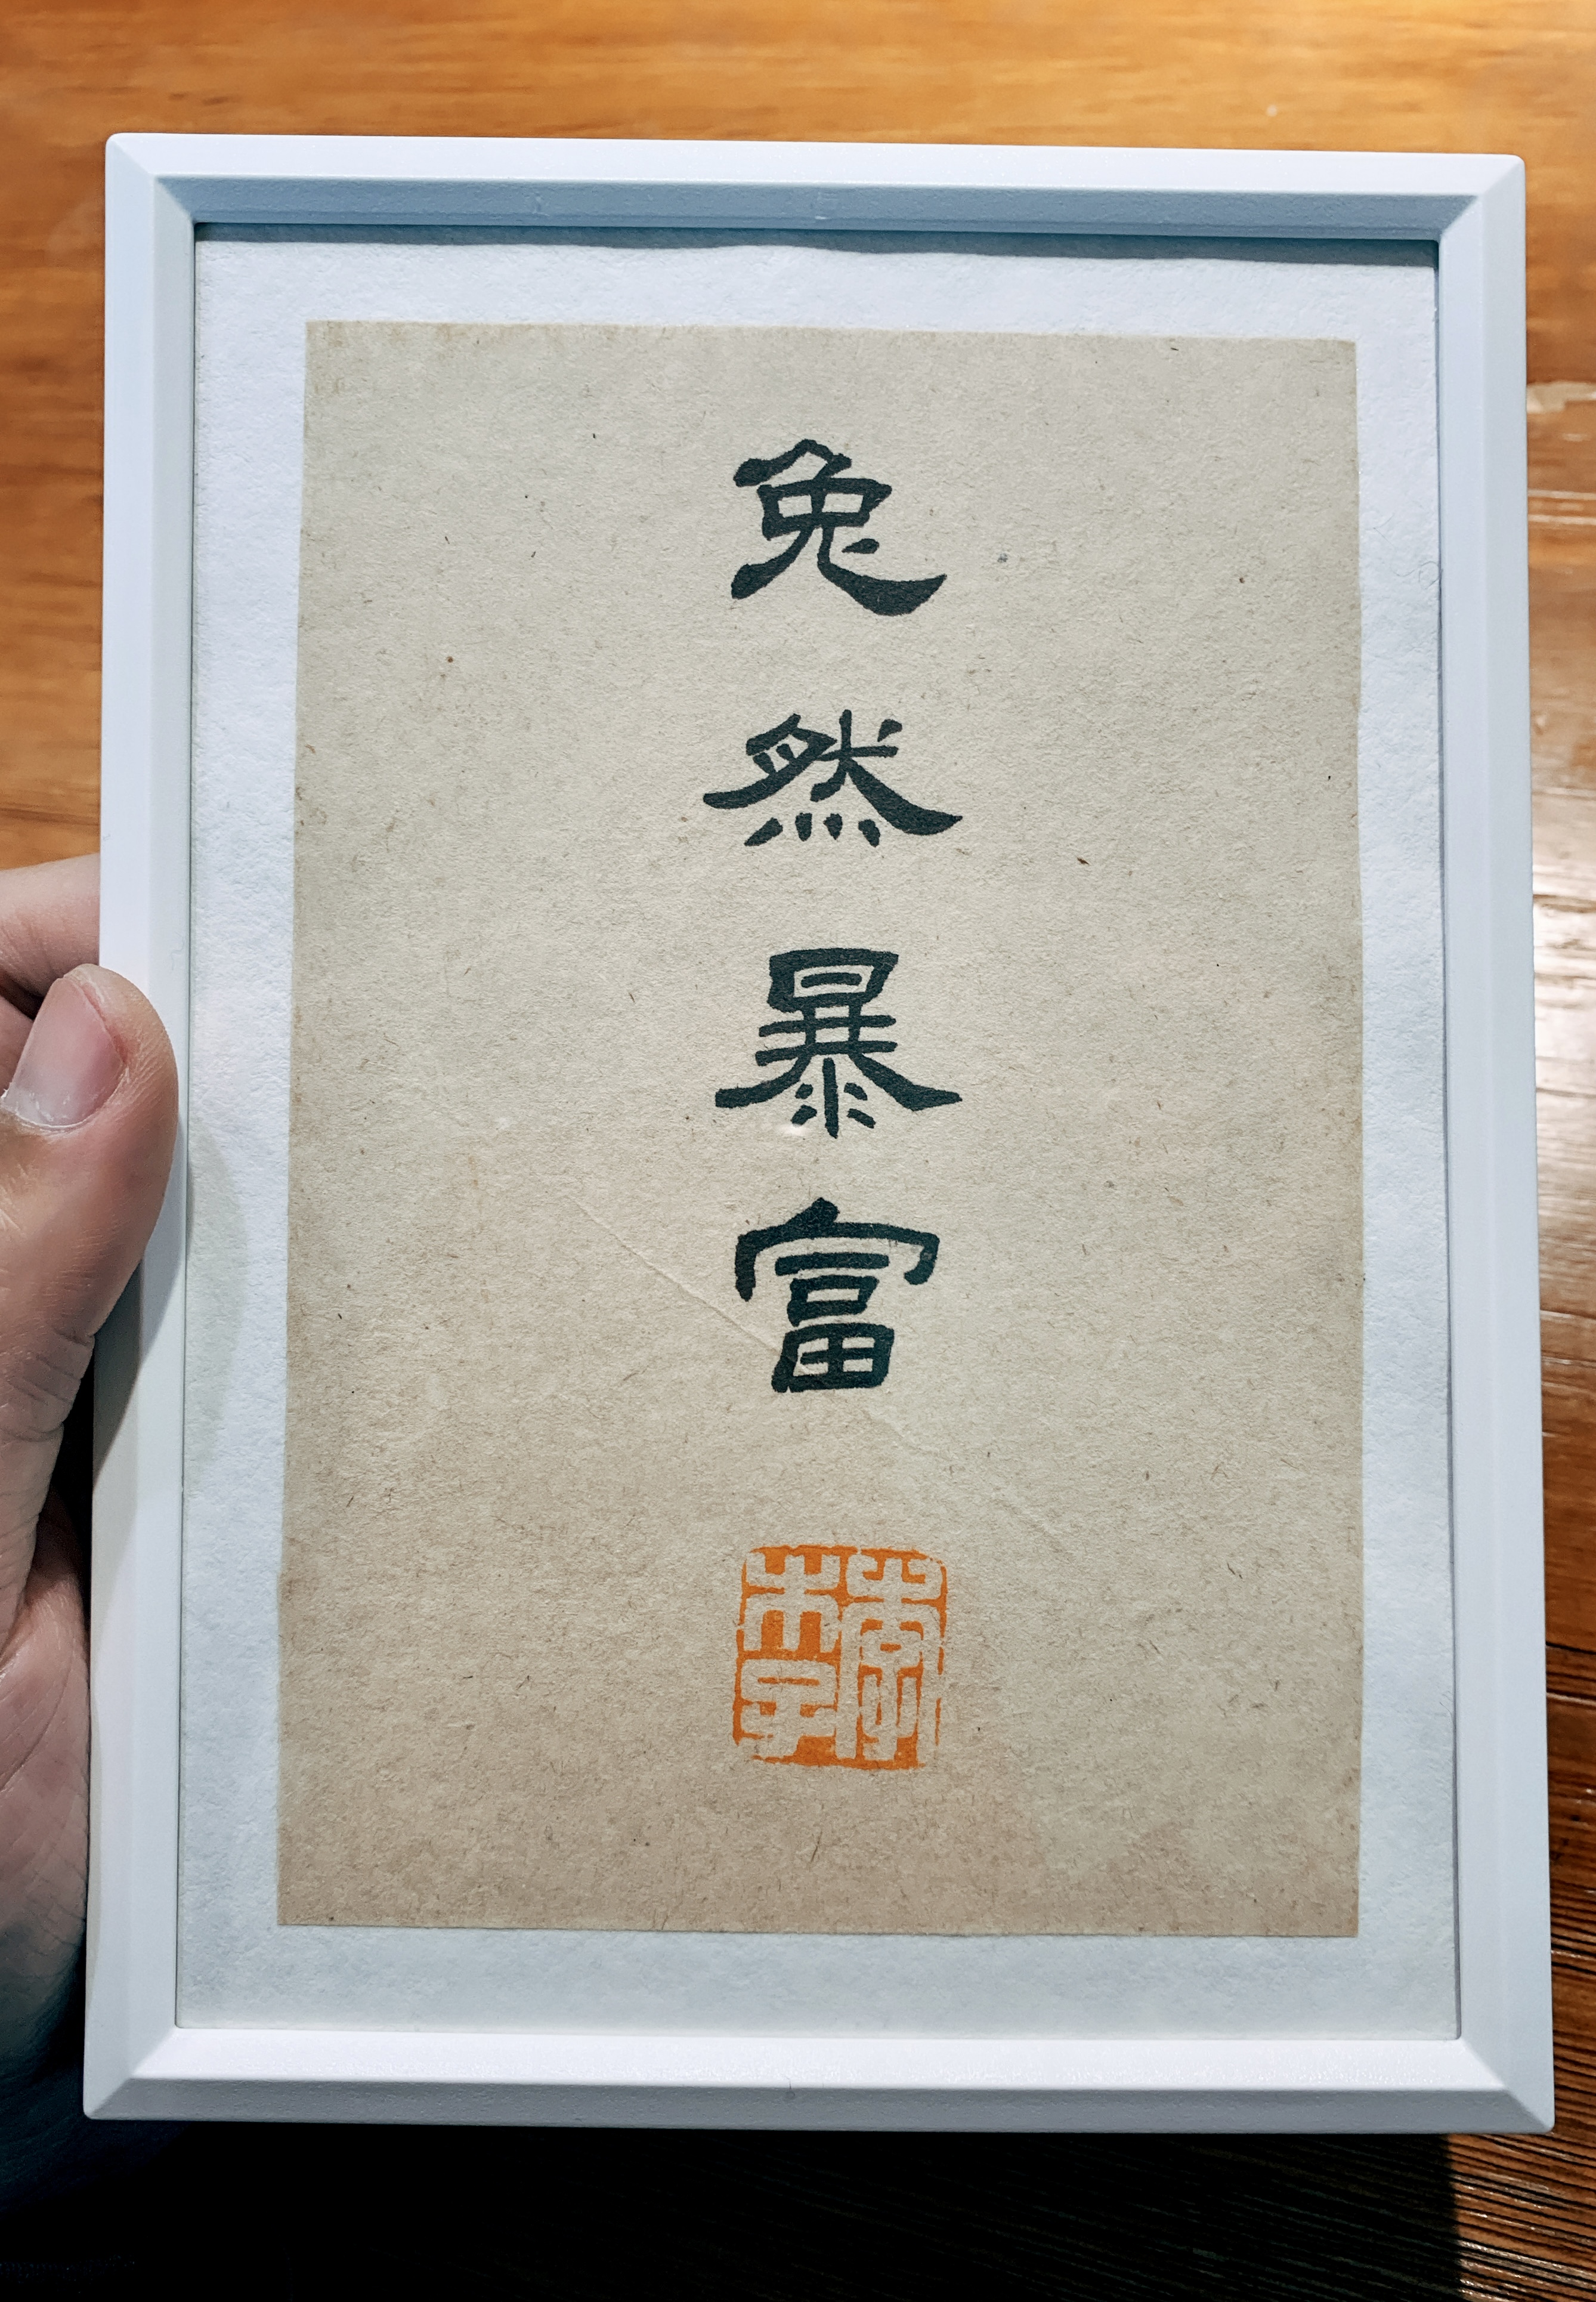 兔然暴富